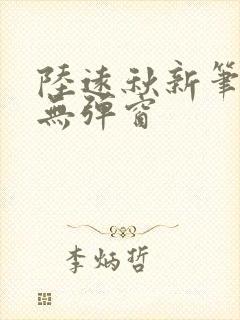 陸遠秋新筆
無彈窗
李炳哲